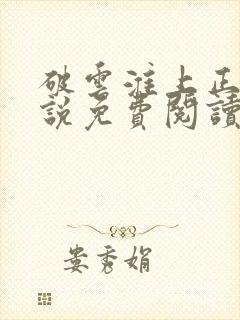 破雲淮上正
說免費閱讀
婁秀娟